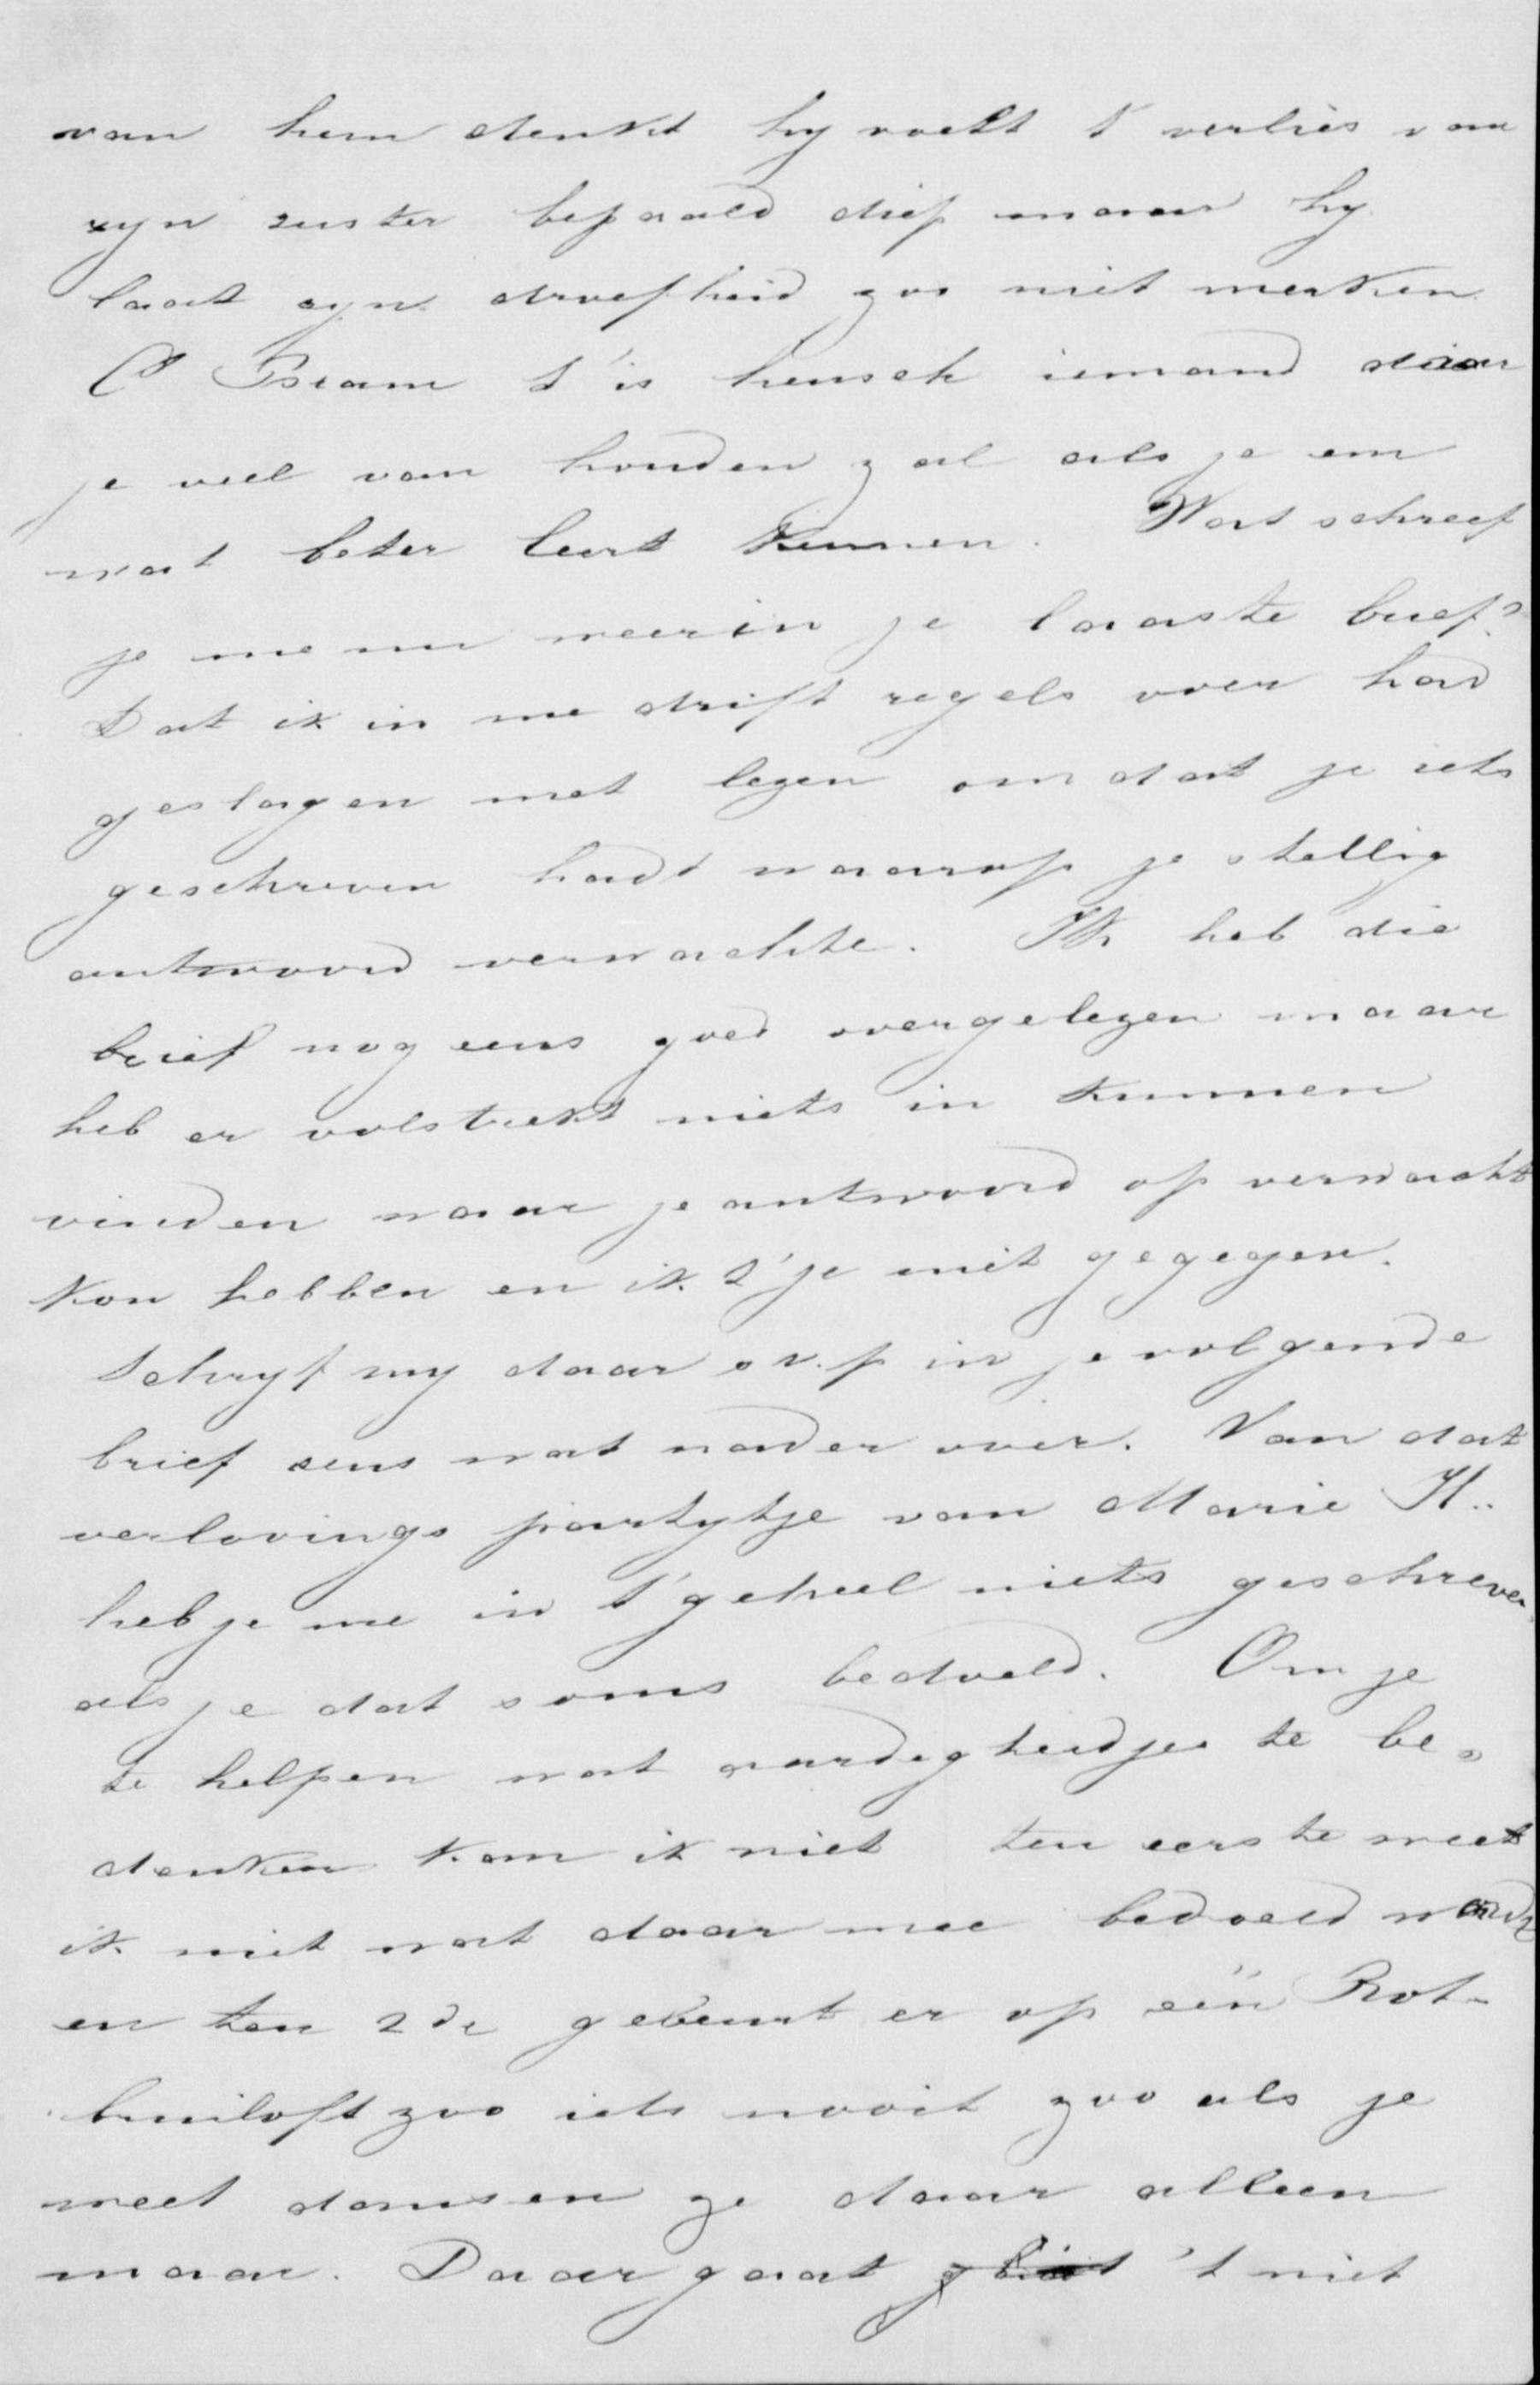 van hem denkt hy voelt t verlies van
zyn zuster bepaald diep maar hy
laat zyn droefheid zoo niet merken.
O Bram t'is heusch iemand daar
je veel van houden zal als je em
wat beter leert kennen. Wat schreef
je me nu weer in je laaste brief?
Dat ik in me drift regels over had
geslagen met lezen omdat je iets
geschreven hadt waarop je stellig
antwoord verwachte. Ik heb die
brief nog eens goed overgelezen maar
heb er volstrekt niets in kunnen
vinden waar je antwoord op verwacht
kon hebben en ik t'je niet gegegen.
Schryf my daar s.v.p in je volgende
brief eens wat nader over. Van dat
verlovings partytje van Marie H..
heb je me in t'geheel niets geschreven
als je dat soms bedoeld. Om je
te helpen wat aardigheidjes te be=
denken kan ik niet ten eerste weet
ik niet wat daar mee bedoeld word
en ten 2de gebeurt er op eén Rot-
bruiloft zoo iets nooit zoo als je
weet dansen ze daar alleen
maar. Daar gaat 't niet